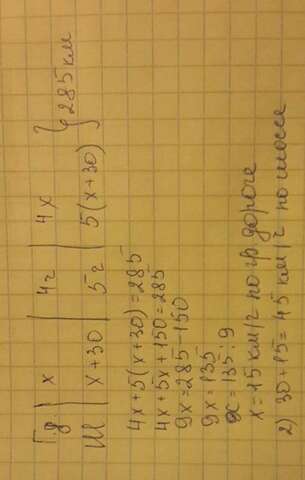 Гд | x | 4ч | 4x } 285 км
Ш | x+30 | 5ч | 5(x+30)
4x+5(x+30)=285
4x+5x+150=285
9x=285-150
9x=135
x=135:9
x=15 км/ч по гр. дороге
2) 30+15=45 км/ч по шоссе